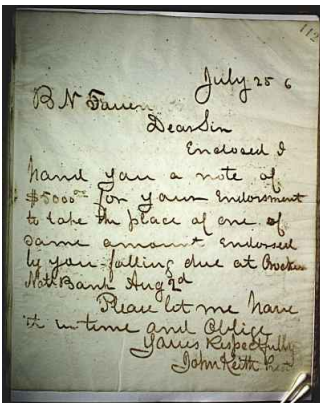 112
July 25 6
B N Farren
Dear Sir
Enclosed I
hand you a note of
$5000 00 for your Endorsment
to take the place of one of
same amount endorsed
by you falling due at Crocker
Natl Bank Aug 2d
Please let me have
it in time and Oblige
Yours Respectfully
John Keith